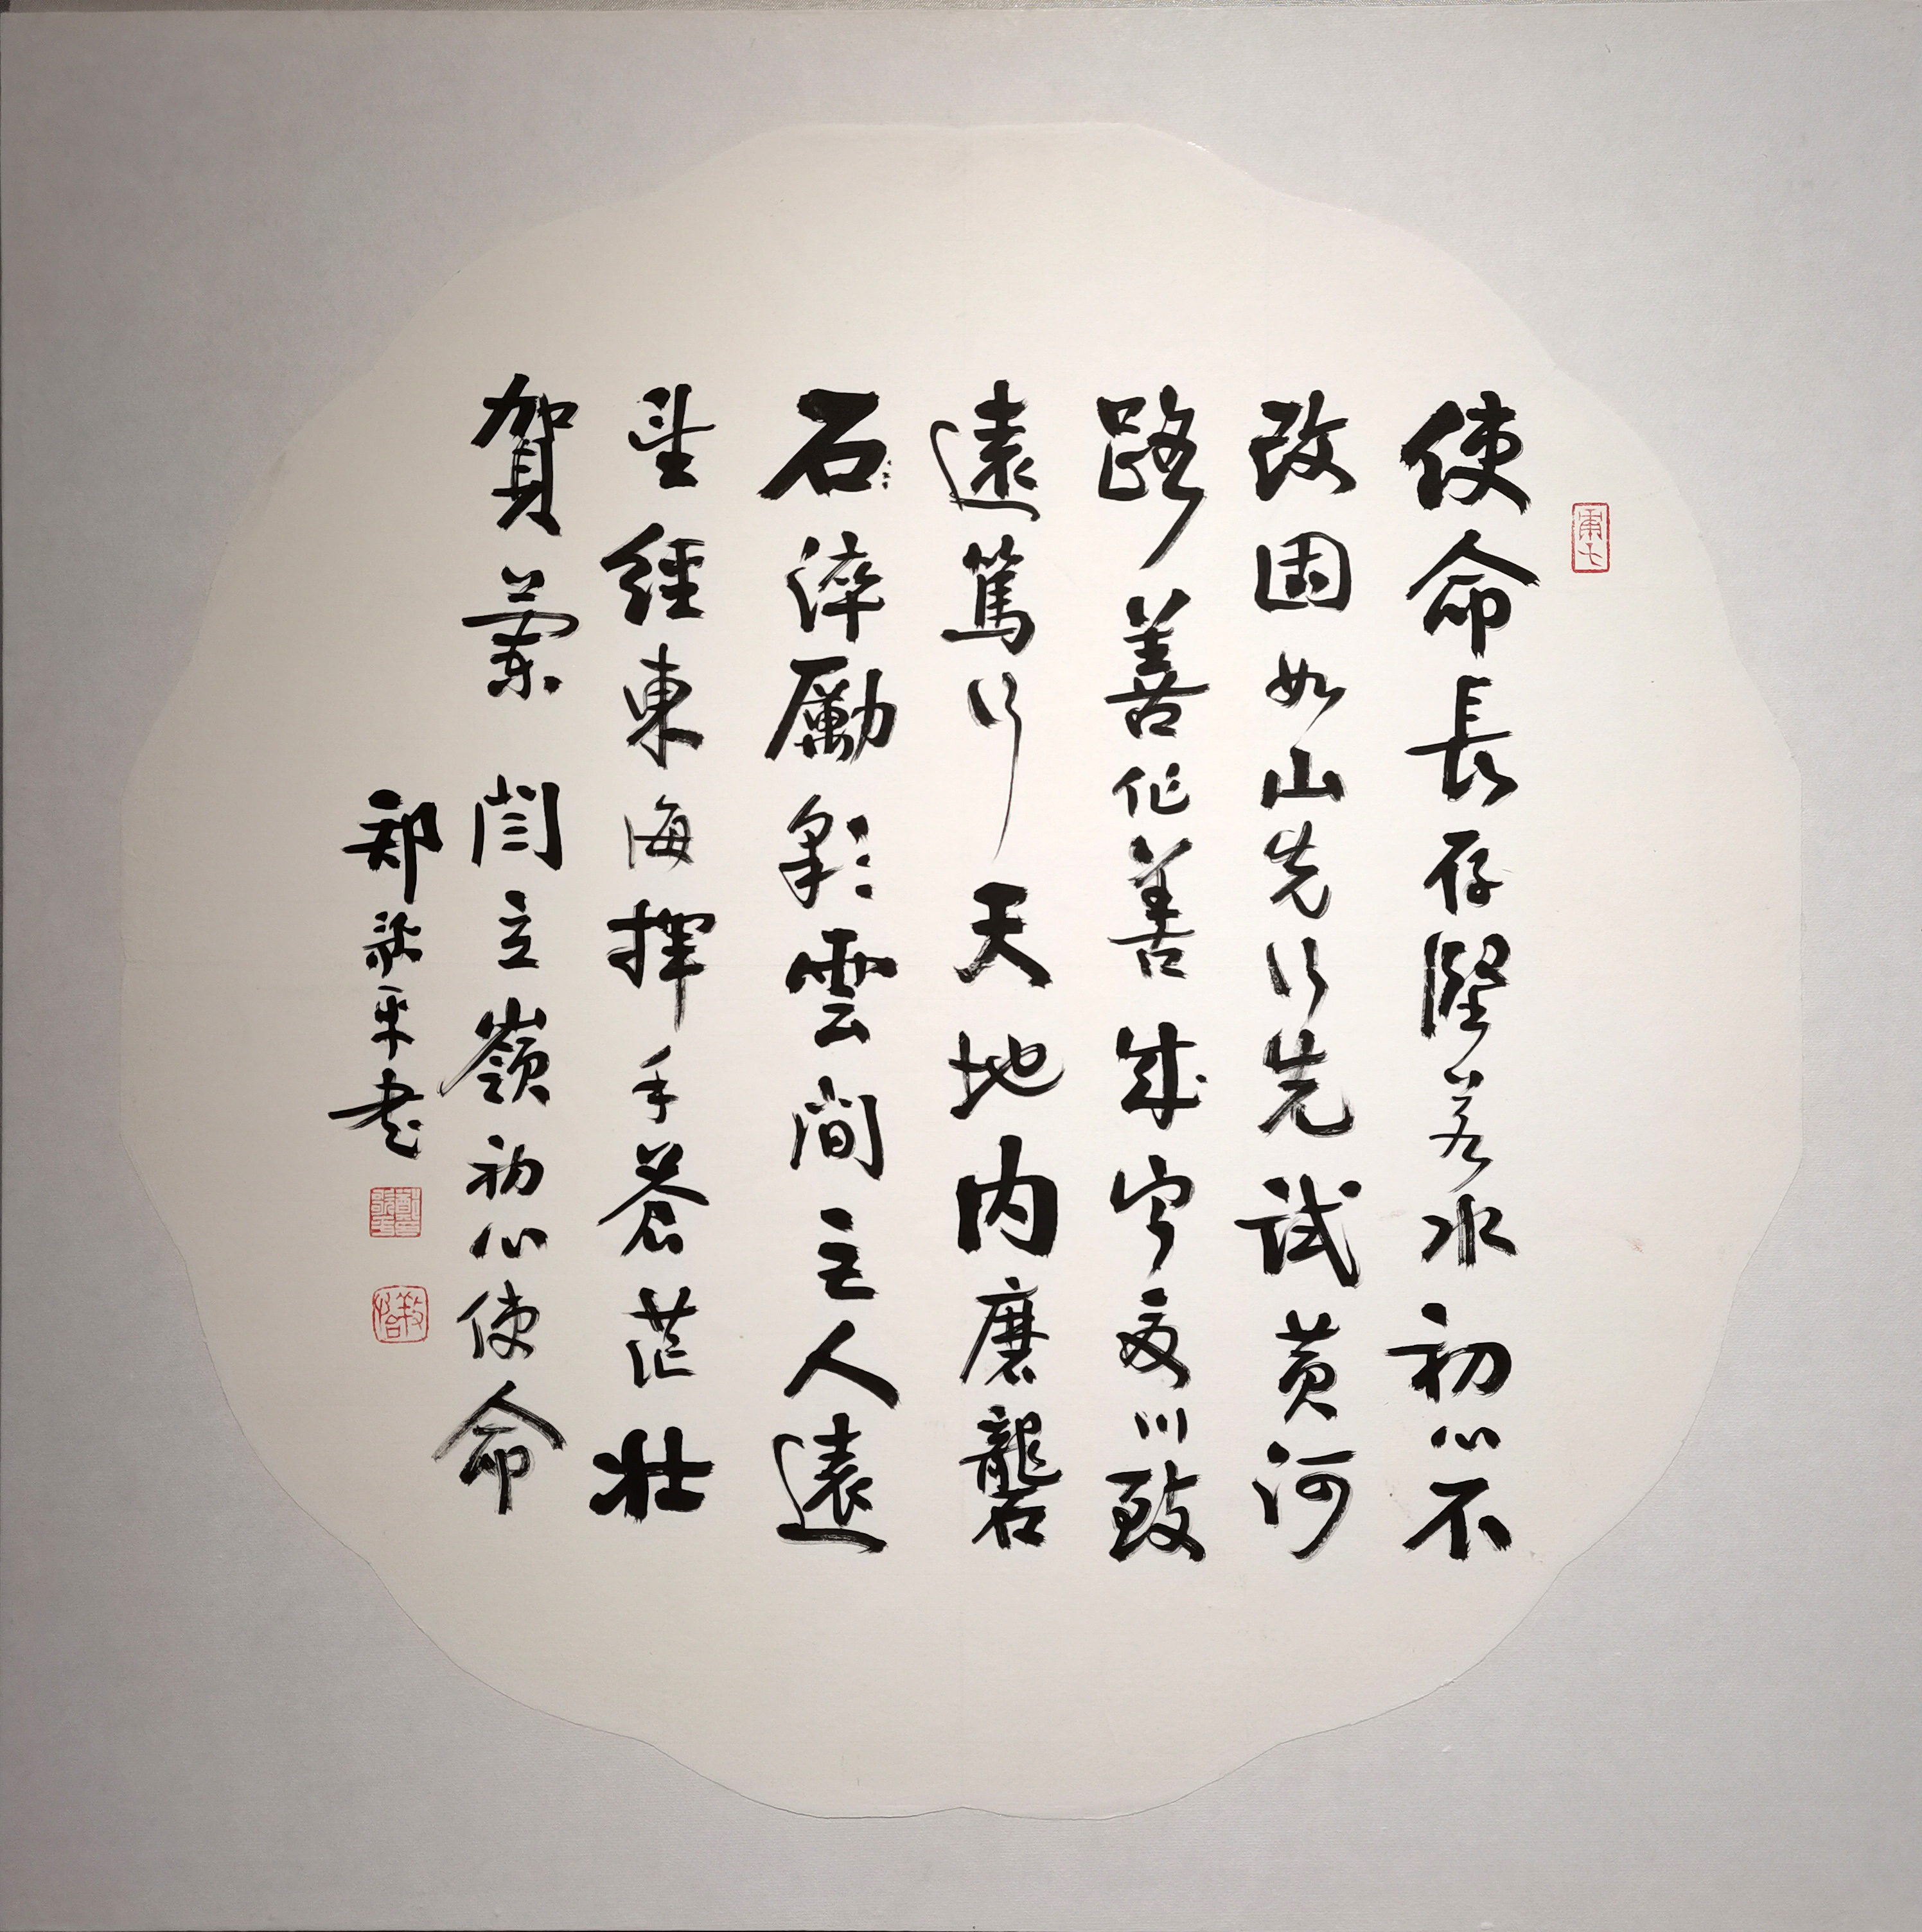 使命長存堅若水初心不
改固如山先行先試黄河
路善作善成宁夏川致
遠篤行天地内磨礱
石淬勵彩雲間主人遠
望經東海揮手蒼茫壮
賀蘭 閆立嶺初心使命
郑歌平書